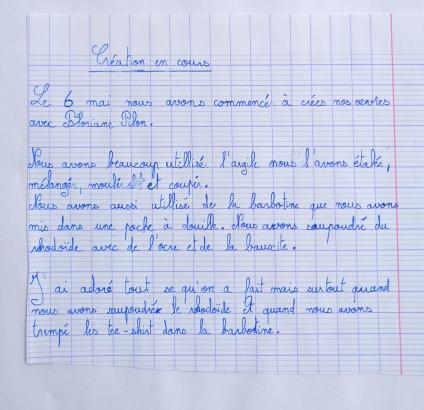 Création en cours
Le 6 mai nous avons commencé à crées nos œuvres
avec Bloriane Blon.
Nous avons beaucoup utilisé l'argile nous l'avons étalés,
mélangé, moulér et coupér.
Nous avons aussi utilisé de la barbotine que nous avons
mis dans une poche à douille. Nous avons saupoudré du
rhodoïde avec de l'ocre et de la bauxite.
J'ai adoré tout se qu'on a fait mais surtout quand
nous avons saupoudré le rhodoïde Et quand nous avons
trempé les tee-shirt dans la barbotine.